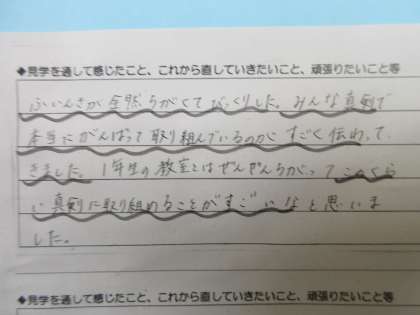 ◆見学を通して感じたこと、これから直していきたいこと、頑張りたいこと等
ふいんきが全然ちがくてびっくりした。みんな真剣で
本当にがんばって取り組んでいるのがすごく伝わって
きました。1年生の教室とはぜんぜんちがってこのくら
い真剣に取り組めることがすごいなと思いま
した。
◆見学を通して感じたこと、これから直していきたいこと、頑張りたいこと等